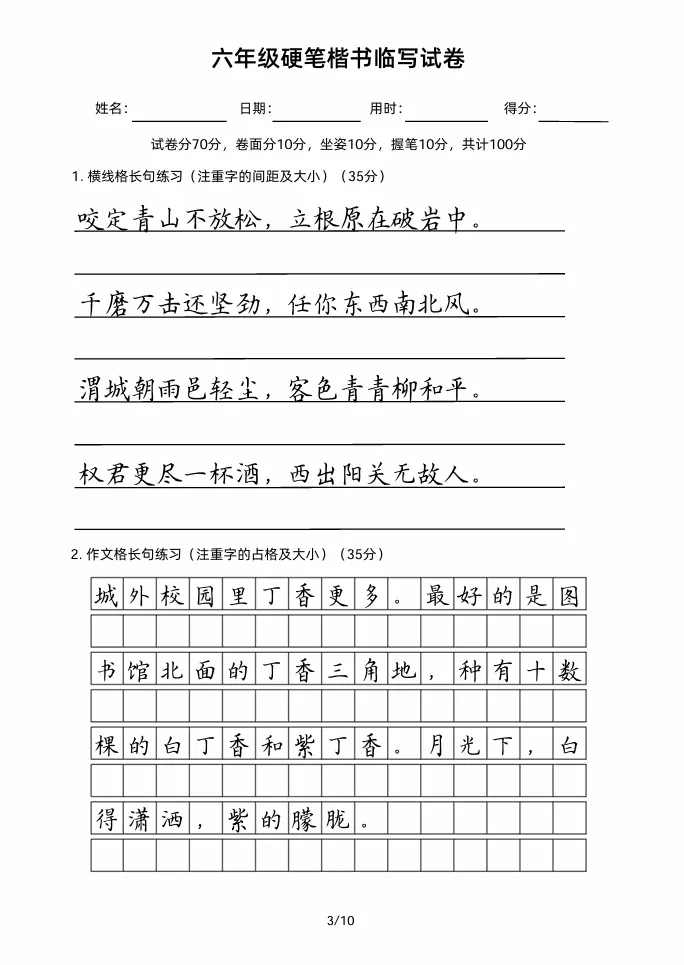 六年级硬笔楷书临写试卷
姓名： 日期： 用时： 得分：
试卷分70分，卷面分10分，坐姿10分，握笔10分，共计100分
1. 横线格长句练习（注重字的间距及大小）（35分）
咬定青山不放松，立根原在破岩中。
千磨万击还坚劲，任你东西南北风。
渭城朝雨邑轻尘，客色青青柳和平。
权君更尽一杯酒，西出阳关无故人。
2. 作文格长句练习（注重字的占格及大小）（35分）
城外校园里丁香更多。最好的是图
书馆北面的丁香三角地，种有十数
棵的白丁香和紫丁香。月光下，白
得潇洒，紫的朦胧。
3/10